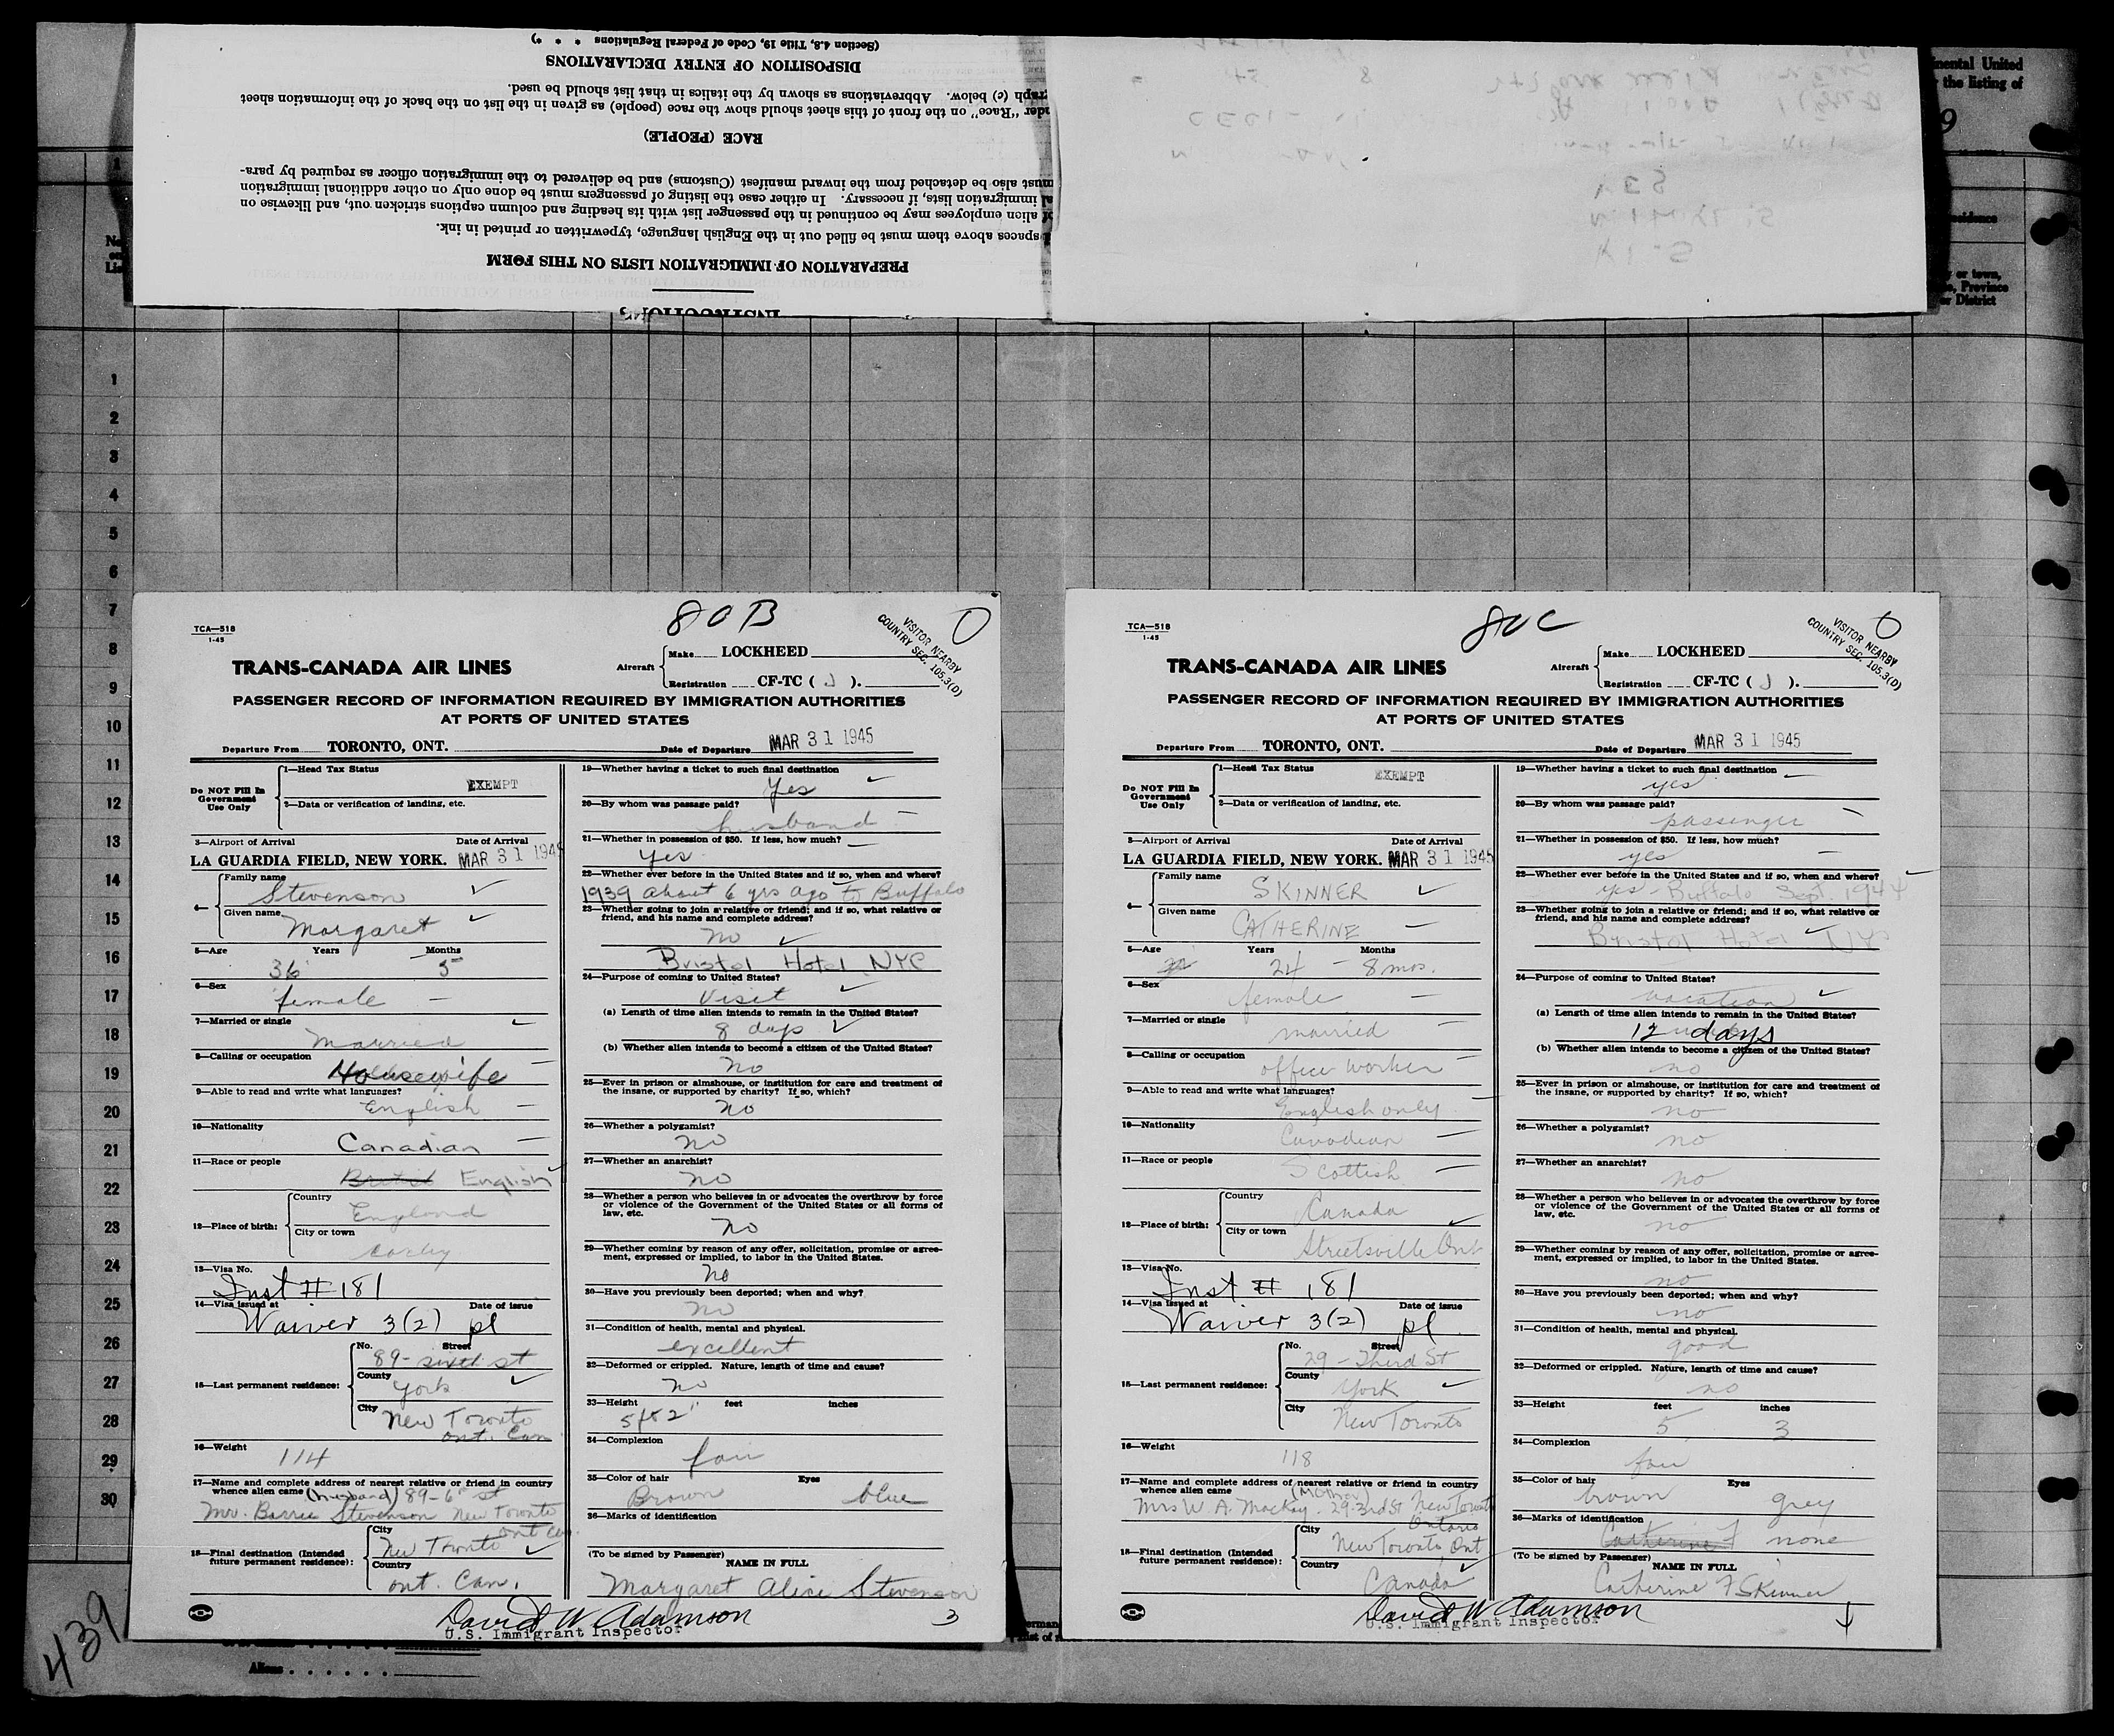 (Section 4.8, Title 19, Code of Federal Regulations * * *)
DISPOSITION OF ENTRY DECLARATIONS
graph (c) below. Abbreviations as shown by the italics in that list should be used.
nder "Race" on the front of this sheet should show the race (people) as given in the list on the back of the information sheet
RACE (PEOPLE)
must also be detached from the inward manifest (Customs) and be delivered to the immigration officer as required by para-
al immigration lists, if necessary. In either case the listing of passengers must be done only on other additional immigration
of alien employees may be continued in the passenger list with its heading and column captions stricken out, and likewise on
spaces above them must be filled out in the English language, typewritten or printed in ink.
PREPARATION OF IMMIGRATION LISTS ON THIS FORM
INSTRUCTIONS
inental United
the listing of
9
No.
on
List
esidence
or town,
Province
or District
1
2
3
4
5
6
7
8
9
10
11
12
13
14
15
16
17
18
19
20
21
22
23
24
25
26
27
28
29
30
439
Aliens
80B
TCA—518
1-45
VISITOR NEARBY
COUNTRY SEC. 105.3(D)
TRANS-CANADA AIR LINES
Aircraft
Make LOCKHEED
Registration CF-TC ( J ).
PASSENGER RECORD OF INFORMATION REQUIRED BY IMMIGRATION AUTHORITIES
AT PORTS OF UNITED STATES
Departure From TORONTO, ONT. Date of Departure MAR 31 1945
Do NOT Fill In
Government
Use Only
1—Head Tax Status EXEMPT
2—Data or verification of landing, etc.
3—Airport of Arrival Date of Arrival
LA GUARDIA FIELD, NEW YORK. MAR 31 1945
4— Family name Stevenson
Given name Margaret
5—Age Years Months
36 5
6—Sex
female
7—Married or single
Married
8—Calling or occupation
Housewife
9—Able to read and write what languages?
English
10—Nationality
Canadian
11—Race or people
English
12—Place of birth:
Country
England
City or town
Corby
13—Visa No.
Inst # 181
14—Visa issued at Date of issue
Waiver 3(2) pl
15—Last permanent residence:
No. Street
89 - sixth st
County
York
City New Toronto
ont. Can
16—Weight
114
17—Name and complete address of nearest relative or friend in country
whence alien came (husband) 89-6th st
Mr. Barrie Stevenson New Toronto
Ont Can.
18—Final destination (Intended
future permanent residence):
City
New Toronto
Country
ont. Can.
19—Whether having a ticket to such final destination
Yes
20—By whom was passage paid?
husband
21—Whether in possession of $50. If less, how much?
yes
22—Whether ever before in the United States and if so, when and where?
1939 about 6 yrs ago to Buffalo
23—Whether going to join a relative or friend; and if so, what relative or
friend, and his name and complete address?
no
Bristol Hotel NYC
24—Purpose of coming to United States?
Visit
(a) Length of time alien intends to remain in the United States?
8 days
(b) Whether alien intends to become a citizen of the United States?
No
25—Ever in prison or almshouse, or institution for care and treatment of
the insane, or supported by charity? If so, which?
no
26—Whether a polygamist?
no
27—Whether an anarchist?
no
28—Whether a person who believes in or advocates the overthrow by force
or violence of the Government of the United States or all forms of
law, etc.
no
29—Whether coming by reason of any offer, solicitation, promise or agree-
ment, expressed or implied, to labor in the United States.
no
30—Have you previously been deported; when and why?
no
31—Condition of health, mental and physical.
excellent
32—Deformed or crippled. Nature, length of time and cause?
no
33—Height feet inches
5ft 2"
34—Complexion
fair
35—Color of hair Eyes
Brown blue
36—Marks of identification
(To be signed by Passenger)
NAME IN FULL
Margaret Alice Stevenson
David W Adamson
U.S. Immigrant Inspector
3
80C
TCA—518
1-45
VISITOR NEARBY
COUNTRY SEC. 105.3(D)
TRANS-CANADA AIR LINES
Aircraft
Make LOCKHEED
Registration CF-TC ( J ).
PASSENGER RECORD OF INFORMATION REQUIRED BY IMMIGRATION AUTHORITIES
AT PORTS OF UNITED STATES
Departure From TORONTO, ONT. Date of Departure MAR 31 1945
Do NOT Fill In
Government
Use Only
1—Head Tax Status EXEMPT
2—Data or verification of landing, etc.
3—Airport of Arrival Date of Arrival
LA GUARDIA FIELD, NEW YORK. MAR 31 1945
4— Family name SKINNER
Given name CATHERINE
5—Age Years Months
24 - 8 mos.
6—Sex
female
7—Married or single
married
8—Calling or occupation
office worker
9—Able to read and write what languages?
English only
10—Nationality
Canadian
11—Race or people
Scottish
12—Place of birth:
Country
Canada
City or town
Streetsville Ont
13—Visa No.
Inst # 181
14—Visa issued at Date of issue
Waiver 3(2) pl
15—Last permanent residence:
No. Street
29 - Third St
County
York
City
New Toronto
16—Weight
118
17—Name and complete address of nearest relative or friend in country
whence alien came (Mother)
Mrs W. A. Mackay. 29-3rd St New Toronto
Ontario
18—Final destination (Intended
future permanent residence):
City
New Toronto Ont
Country
Canada
19—Whether having a ticket to such final destination
yes
20—By whom was passage paid?
passenger
21—Whether in possession of $50. If less, how much?
yes
22—Whether ever before in the United States and if so, when and where?
yes - Buffalo Sept. 1944
23—Whether going to join a relative or friend; and if so, what relative or
friend, and his name and complete address?
Bristol Hotel NYC
24—Purpose of coming to United States?
vacation
(a) Length of time alien intends to remain in the United States?
12 days
(b) Whether alien intends to become a citizen of the United States?
no
25—Ever in prison or almshouse, or institution for care and treatment of
the insane, or supported by charity? If so, which?
no
26—Whether a polygamist?
no
27—Whether an anarchist?
no
28—Whether a person who believes in or advocates the overthrow by force
or violence of the Government of the United States or all forms of
law, etc.
no
29—Whether coming by reason of any offer, solicitation, promise or agree-
ment, expressed or implied, to labor in the United States.
no
30—Have you previously been deported; when and why?
no
31—Condition of health, mental and physical.
good
32—Deformed or crippled. Nature, length of time and cause?
no
33—Height feet inches
5 3
34—Complexion
fair
35—Color of hair Eyes
brown grey
36—Marks of identification
Catherine F none
(To be signed by Passenger)
NAME IN FULL
Catherine F Skinner
David W Adamson
U.S. Immigrant Inspector